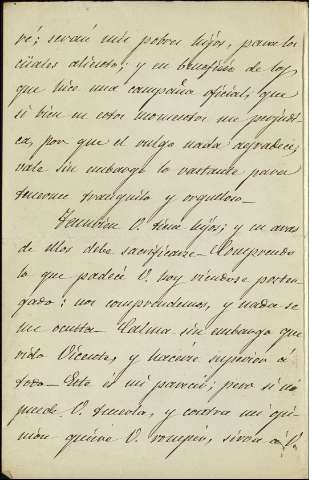 ré; serán mis pobres hijos, para los
cuales aliento; y en beneficio de los
que hice una campaña oficial, que
si bien en estos momentos me perjudi-
ca, por que el vulgo nada agradece,
vale sin embargo lo vastante para
tenerme tranquilo y orgulloso.
Tambien V. tiene hijos; y en aras
de ellos debe sacrificarse - Comprendo
lo que padece V. hoy viendose poster-
gado: nos comprendemos, y nada se
me oculta - Calma sin embargo que-
rido Vicente, y hacerse superior á
todo - Este es mi parecer; pero si no
puede V. tenerla, y contra mi opi-
nión quiere V. romper, sirva á V.